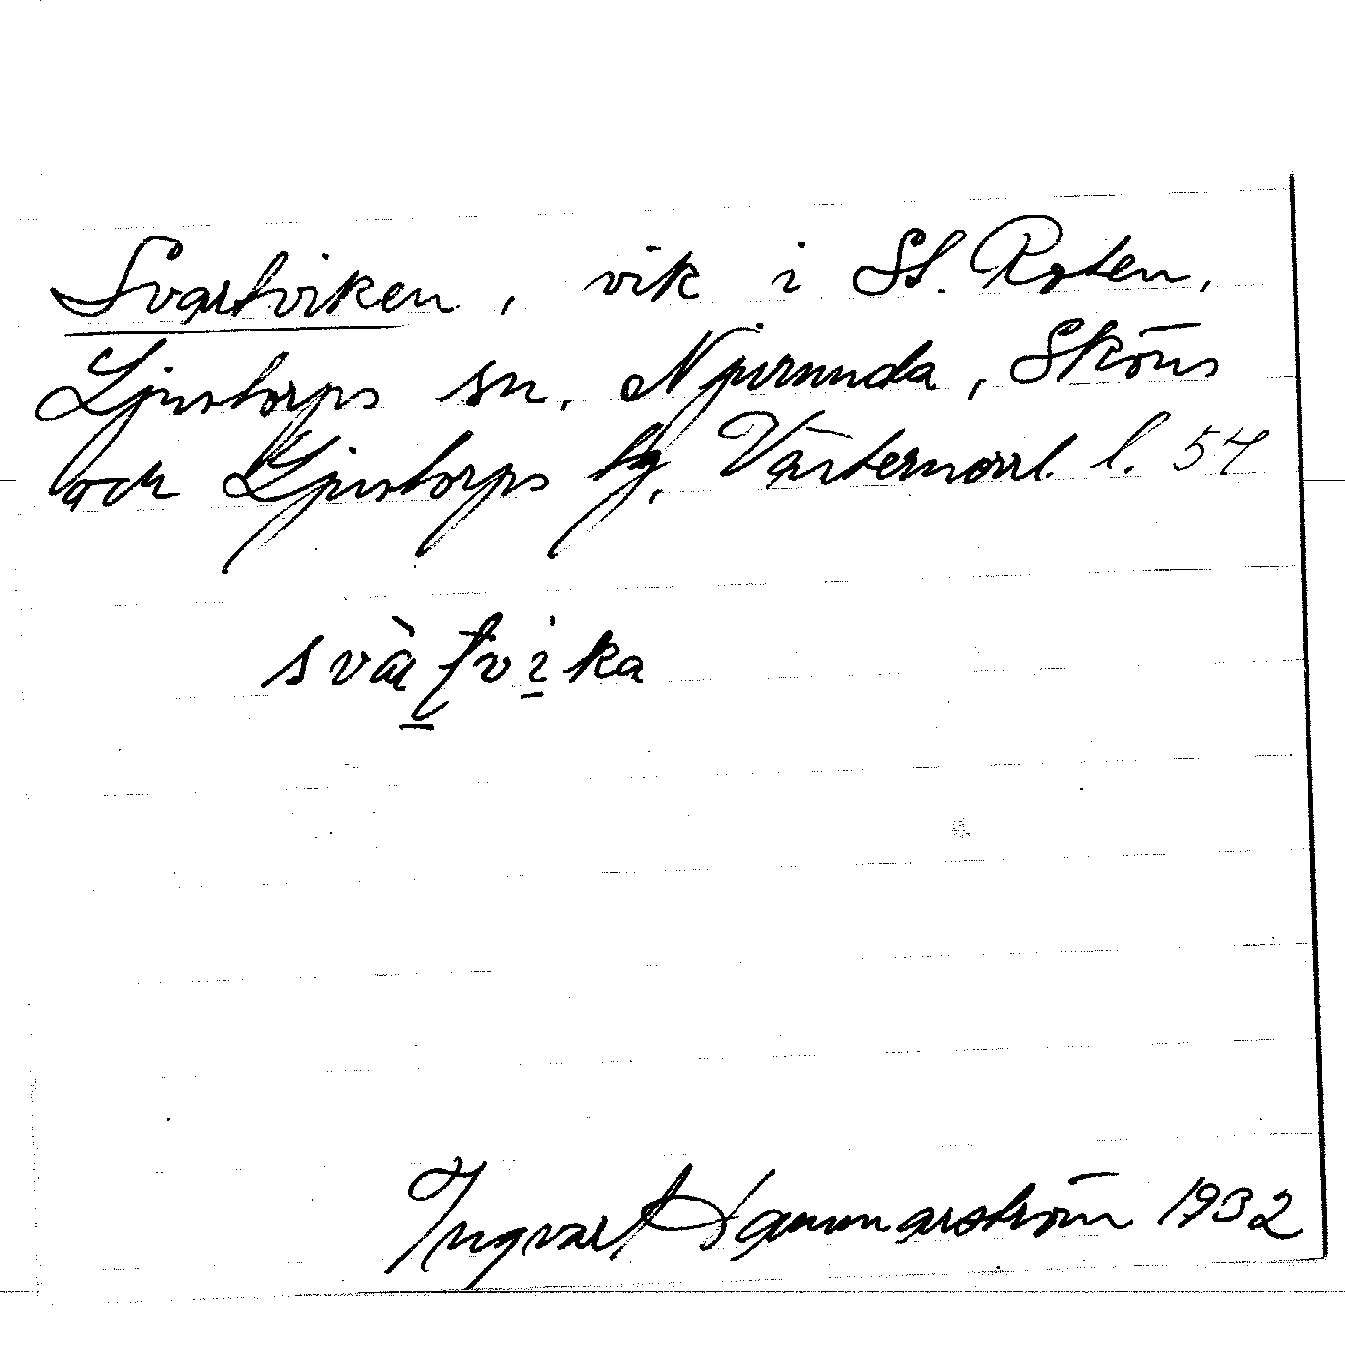 Svartviken, vik i St. Rsten,
Ljustorps sn, Njurunda, Sköns
och Ljustorps tg, Västernorrl. l. 54
svàṭvi̱ka
Ingvart Hammarström 1932